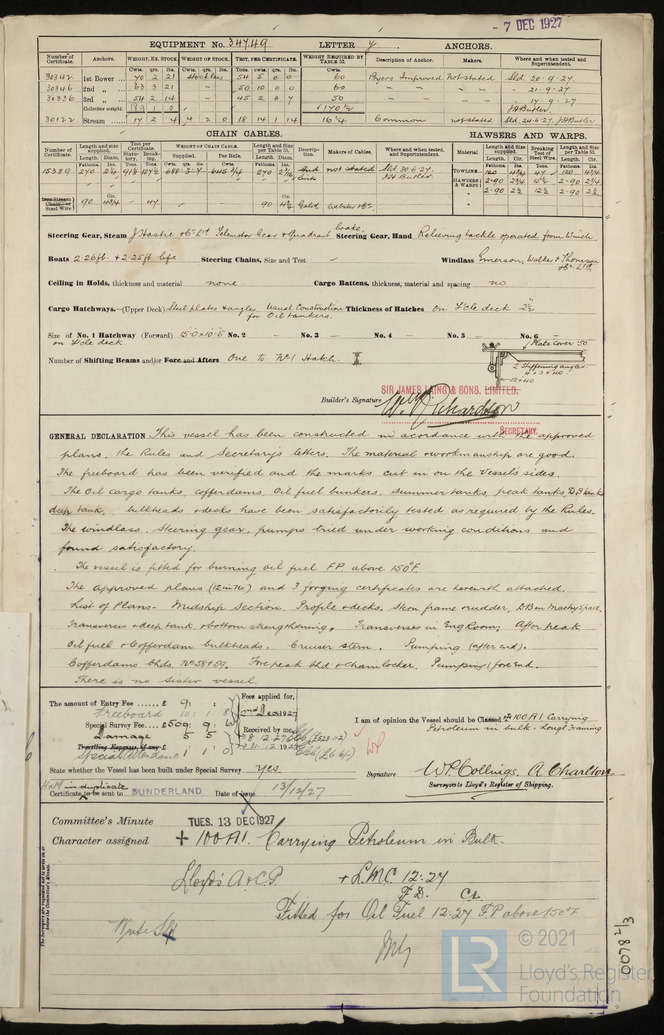 - 7 DEC 1927
EQUIPMENT No. 34749 LETTER y ANCHORS.
Number of Certificate. Anchors. WEIGHT, EX. STOCK. WEIGHT OF STOCK. TEST, PER CERTIFICATE. WEIGHT REQUIRED BY TABLE 53. Description of Anchor. Makers. Where and when tested and Superintendent.
Cwts. qrs. lbs. Cwts. qrs. lbs. Tons. cwts. qrs. lbs. Cwts.
30342 1st Bower 70 2 21 Stockless 54 5 0 0 60 Byers Improved not stated Sld 20-9-27
30346 2nd „ 63 3 21 50 10 0 0 60 - 21-9-27
30336 3rd „ 54 2 14 45 2 3 7 50 17-9-27
Collective weight. 189 1 0 170½ JH Butler
30122 Stream 17 2 4 4 2 0 18 14 1 14 16¼ Common not stated Sld. 24.6.27 JH Butler
CHAIN CABLES. HAWSERS AND WARPS.
Number of Certificate. Length and size supplied. Test per Certificate. WEIGHT OF CHAIN CABLE. Length and size per Table 53. Description. Makers of Cables. Where and when tested, and Superintendent. Material. Length and size supplied. Breaking Test of Steel Wire. Length and size per Table 53.
15329 270 2¼ 270 not stated Sld 20.6.27 TOWLINE 120 47 120
JH Butler HAWSERS & WARPS 2-90 2¾ 15½ 2-90 2¾
2-90 2½ 12½ 2-90
Steel Wire 90 47 90 4½ Galvd
Steering Gear, Steam J Hastie & Co Ltd Telemotor Gear & Quadrant brake Steering Gear, Hand Relieving tackle operated from Winch.
Boats 2-26ft. & 2-25ft life. Steering Chains, Size and Test Windlass Emerson, Walker & Thompson Bros Ltd.
Ceiling in Holds, thickness and material none. Cargo Battens, thickness, material and spacing no
Cargo Hatchways.—(Upper Deck) Steel plates & angles Usual Construction for Oil tankers. Thickness of Hatches. On F'cle deck 2½"
Size of No. 1 Hatchway (Forward) 15-0 x 10-5 No. 2 - No. 3 - No. 4 - No. 5 - No. 6 -
on F'cle deck
Plate cover .50
Number of Shifting Beams and/or Fore and Afters One to No 1 Hatch.
2 Stiffening angles
4 x 3 x .40
SIR JAMES LAING & SONS. LIMITED.
Builder's Signature W. Richardson
SECRETARY.
GENERAL DECLARATION This vessel has been constructed in accordance with the approved
plans, the Rules and Secretary's letters. The material & workmanship are good.
The freeboard has been verified and the marks cut in on the Vessel's sides.
The Oil cargo tanks, cofferdams, Oil fuel bunkers, summer tanks, peak tanks, D.B tanks
deep tank, bulkheads & decks have been satisfactorily tested as required by the Rules.
The windlass. Steering gear, pumps tried under working conditions and
found satisfactory.
The vessel is fitted for burning oil fuel F.P. above 150°F.
The approved plans (12 in No) and 3 forging certificates are herewith attached.
List of Plans- Midship Section. Profile & decks. Stern frame & rudder, D.B. in Machy Space.
Transverses & deep tank & bottom strengthening. Transverses in Eng Room. After peak
Oil fuel & Cofferdam bulkheads. Cruiser stern. Pumping (after end).
Cofferdams Bhds. Nos 58 & 59. Forepeak Bhd & Chain locker. Pumping (fore end.
There is no Sister vessel.
The amount of Entry Fee ...... £ 9 : : Fees applied for,
Freeboard 10 : 1 : 8 2nd Dec 1927
Special Survey Fee.... £509 : 9 : 6 Received by me,
Damage 5 5 8.12.27
Travelling Expenses, if any £
Special Attendance 1 : 1 : 0 31.12.1927
I am of opinion the Vessel should be Classed ✠100A1 Carrying
Petroleum in bulk. Longl Framing
State whether the Vessel has been built under Special Survey Yes.
Signature W.P. Collings. A. Charlton
Surveyors to Lloyd's Register of Shipping.
Hull in duplicate
Certificate to be sent to SUNDERLAND Date of issue 13/12/27
Committee's Minute TUES. 13 DEC 1927
Character assigned + 100A1. Carrying Petroleum in Bulk.
Lloyd's A & C.P. + L.M.C. 12.27
F.D. C.L.
Fitted for Oil Fuel 12.27 F.P above 150°F
Write Sld
0078 2/3
LR
© 2021
Lloyd's Register
Foundation